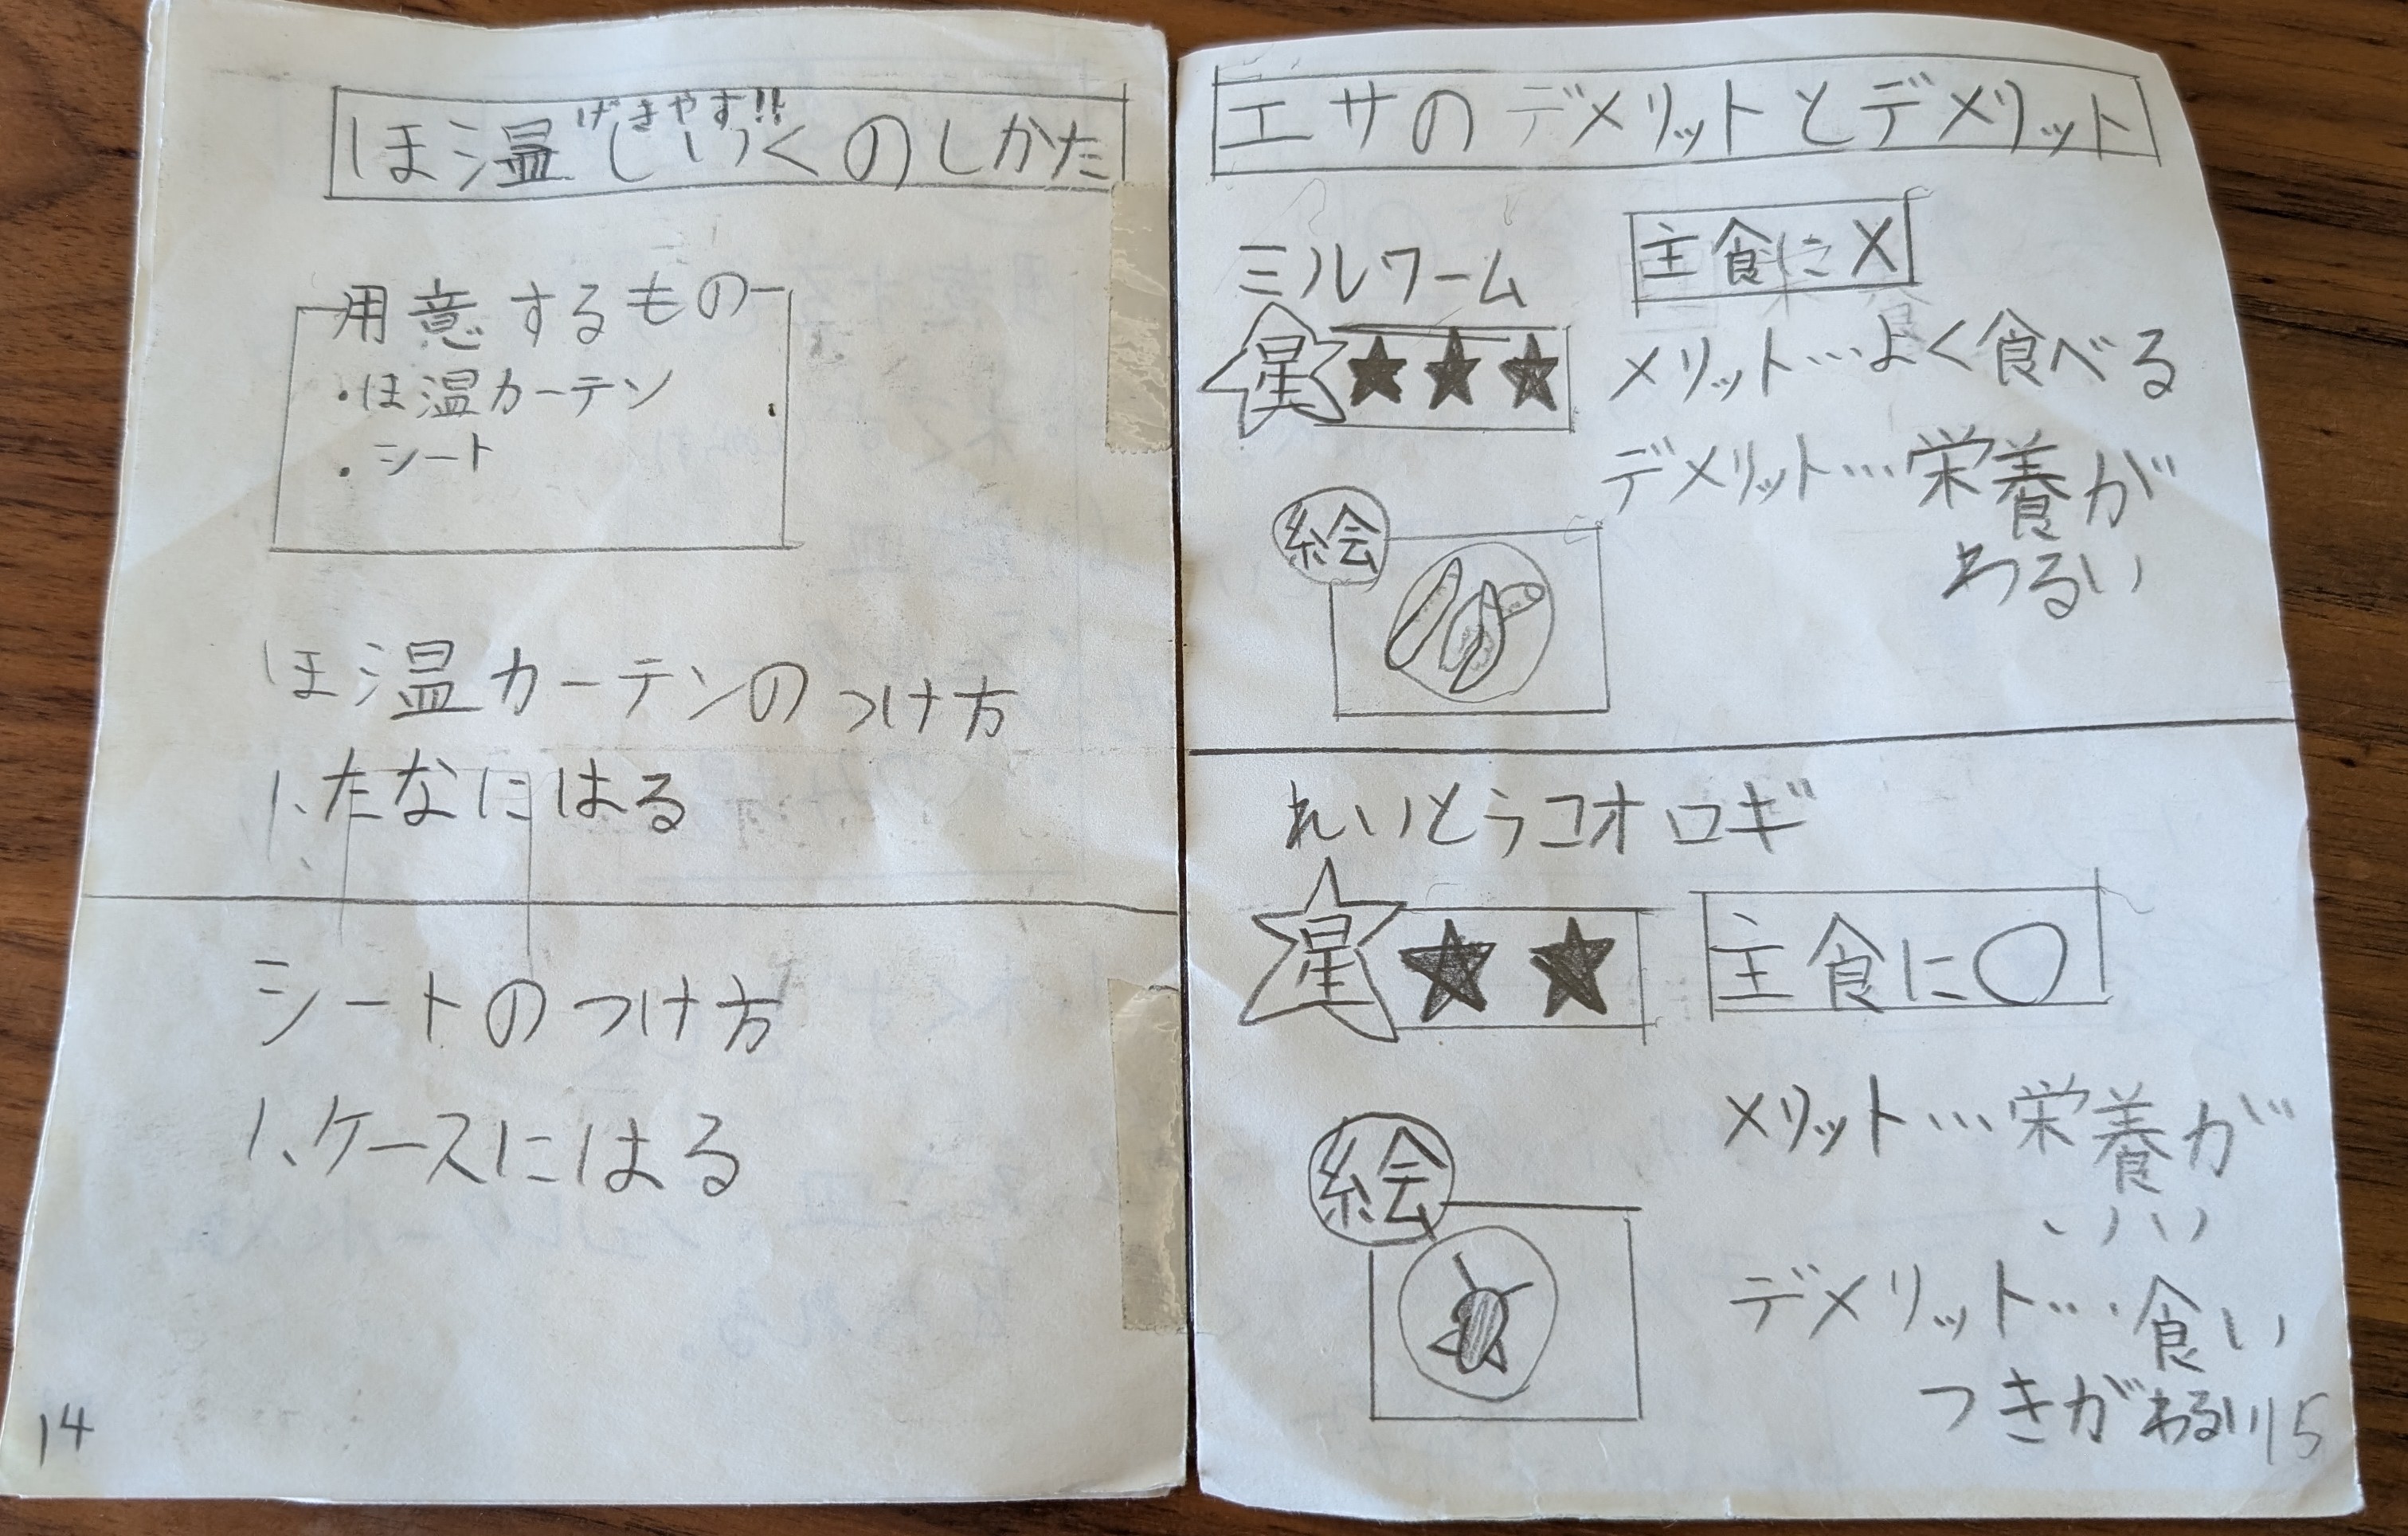 げきやす!!
ほ温しいくのしかた
用意するもの
・ほ温カーテン
・シート
ほ温カーテンのつけ方
1.たなにはる
シートのつけ方
1.ケースにはる
14
エサのデメリットとデメリット
ミルワーム
主食に×
星★★★
メリット…よく食べる
デメリット…栄養が
わるい
絵
れいとうコオロギ
星★★
主食に○
メリット…栄養が
いい
デメリット…食い
つきがわるい
絵
15